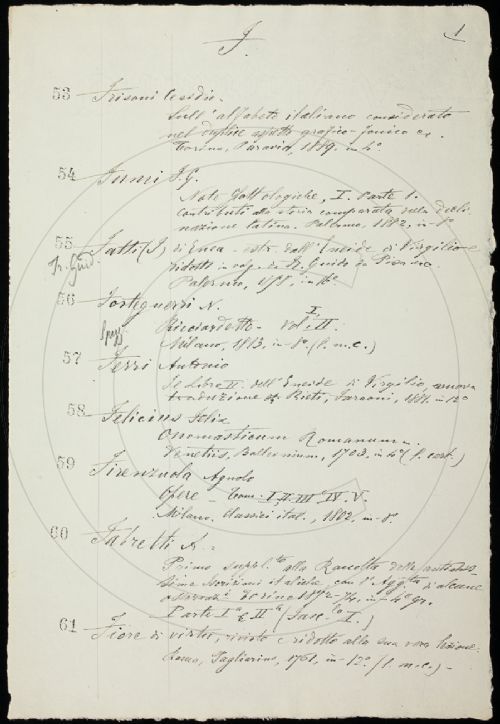 F.
1
53 Frisoni Cesdio.
Sull'alfabeto italiano considerato
nel duplice aspetto grafico-fonico ec.
Torino, Paravia, 1889. in 4°.
54 Fumi F.G.
Note Glottologiche, I. Parte 1.
Contributi alla storia comparata della decli-
nazione latina. Palermo, 1882, in-8°
55 Fatti (I) di Enea - estr. dall'Eneide di Virgilio e
Fr. Guid.
ridotti in volg. da Fr. Guido da Pisa ec.
Palermo, in-16°
56 Forteguerri N.
Ricciardetto - Vol. I, II.
Milano, 1813. in-8° (l. m. c.)
57 Ferri Antonio
Il Libro II. dell'Eneide di Virgilio, nuova
traduzione Rieti, 1881. in-12°
58 Felicius Felix
Onomasticum Romanum -
Venetiis, 1703, in 4°
59 Firenzuola Agnolo
Opere - Tom. I, II. III. IV. V.
Milano. Classici ital., 1802, in-8°.
60 Fabretti A. -
Primo Suppl.to alla Raccolta delle antichis-
sime iscrizioni italiche, con l'Aggta d'alcune
osservaz.i Torino 1872-74. in-4° gr.
Parte Ia e IIa (Fasc.lo I.)
61 Fiore di virtù, rivisto e ridotto alla sua vera lezione.
Roma, Pagliarini, 1761, in-12° (l. m. c.) -